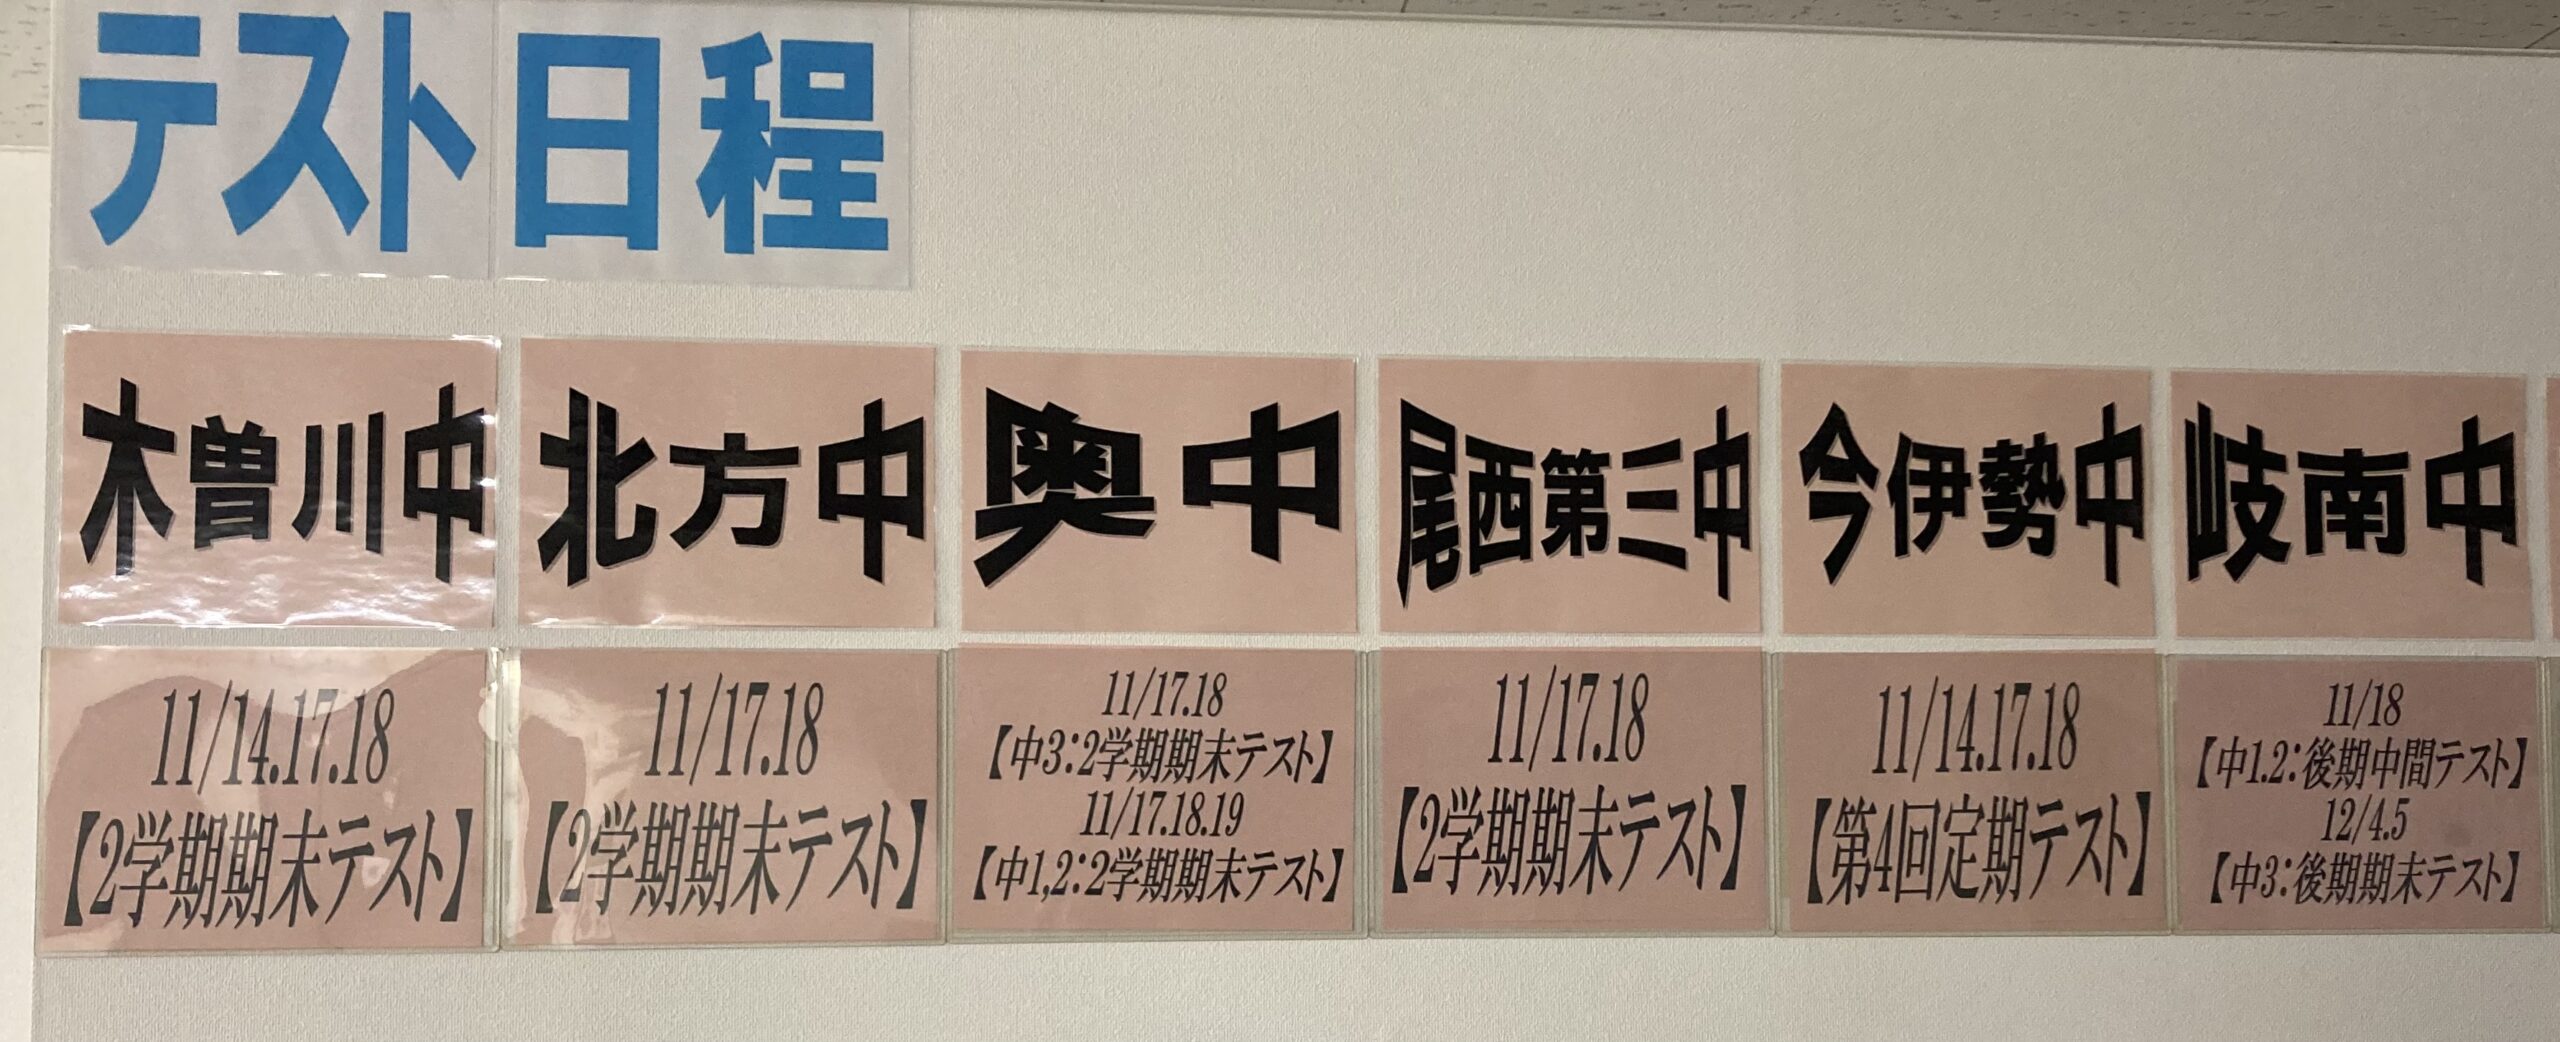 テスト日程
木曽川中
北方中
奥中
尾西第三中
今伊勢中
岐南中
11/14.17.18
【2学期期末テスト】
11/17.18
【2学期期末テスト】
11/17.18
【中3:2学期期末テスト】
11/17.18.19
【中1,2:2学期期末テスト】
11/17.18
【2学期期末テスト】
11/14.17.18
【第4回定期テスト】
11/18
【中1.2:後期中間テスト】
12/4.5
【中3:後期期末テスト】